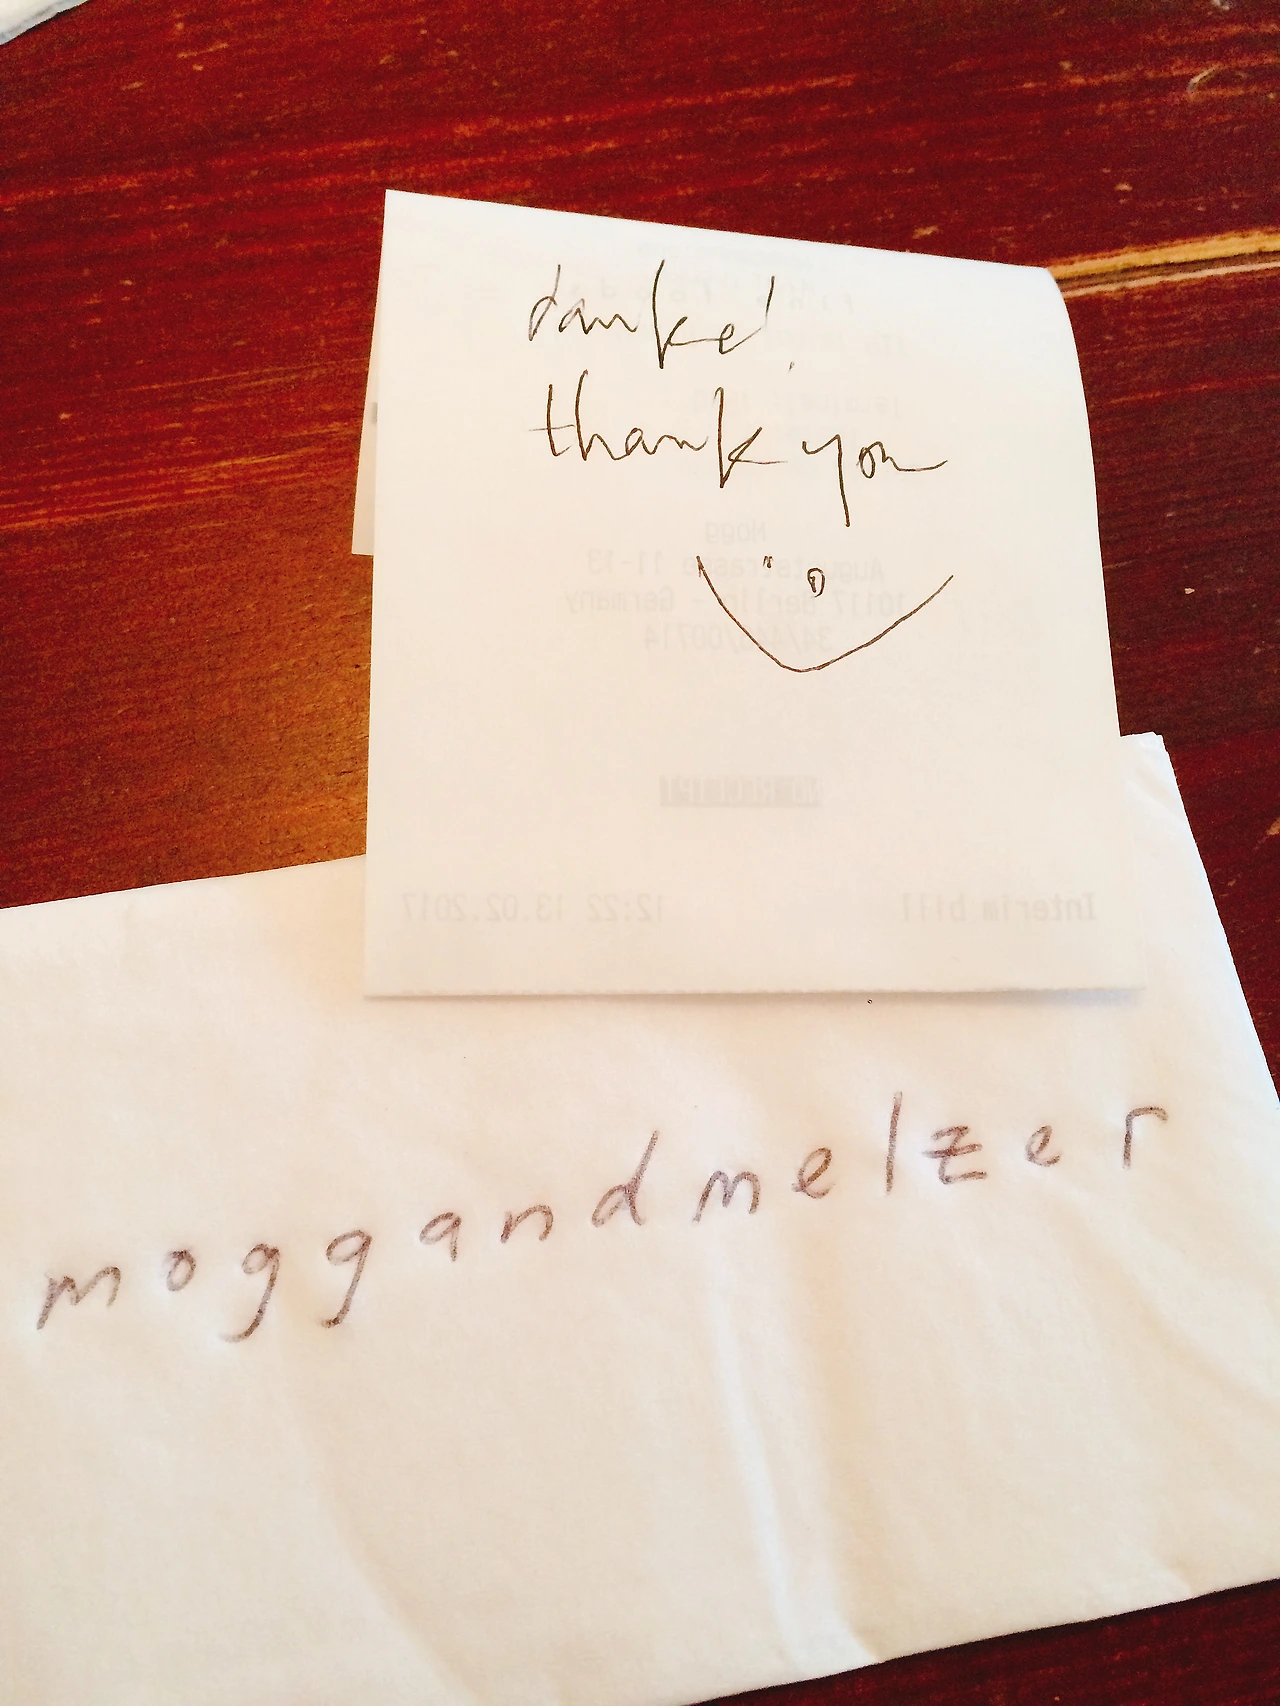 danke!
thank you
Mogg
Auguststrasse 11-13
10117 Berlin - Germany
NO RECEIPT
Interim bill 12:22 13.02.2017
moggandmelzer